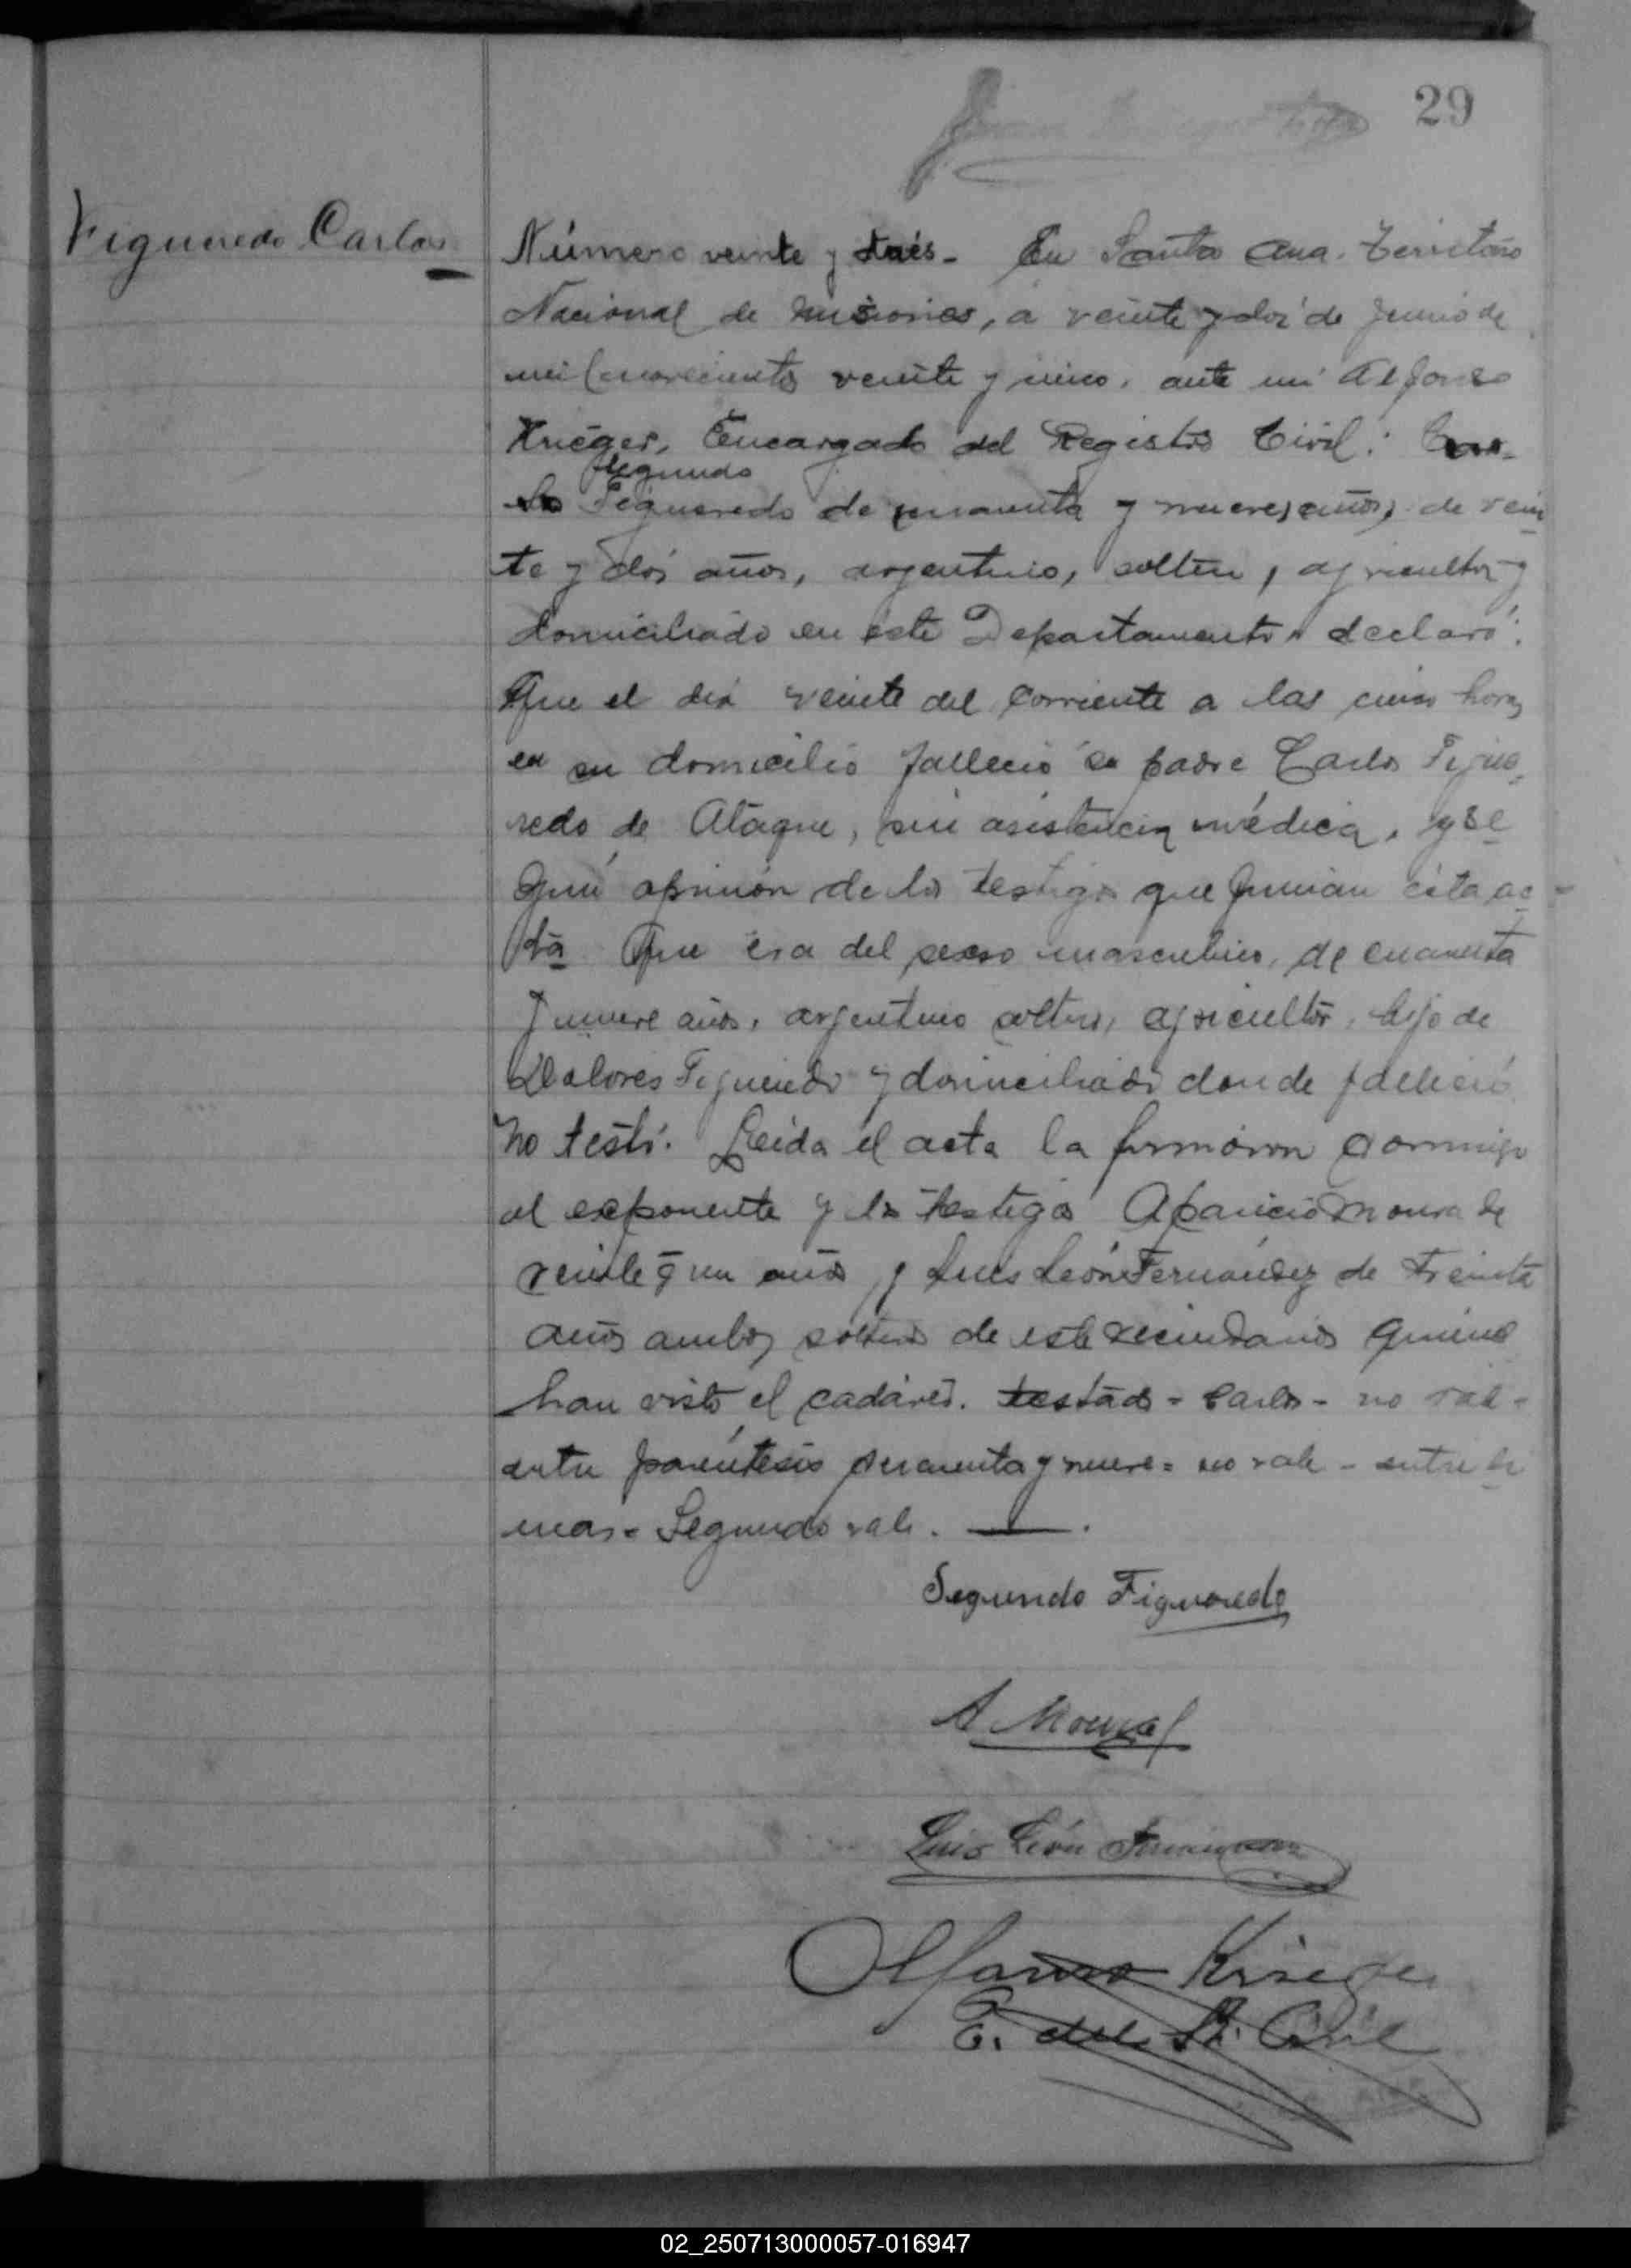 29
Figueredo Carlos
Número veinte y trés - En Santa Ana. Territorio
Nacional de Misiones, a veinte y dos de Junio de
mil novecientos veinte y cinco, ante mi Alfonso
Krieger, Encargado del Registro Civil: Car-
Segundo
los Figueredo de cuarenta y nueve) años, de vein
te y dos años, argentino, soltero, agricultor y
domiciliado en este Departamento declaró:
Que el dia veinte del corriente a las cinco horas
en su domicilio falleció su padre Carlos Figue-
redo de Ataque, sin asistencia médica, y se
gún opinión de los testigos que firman esta ac
ta Que era del sexo masculino, de cuarenta
y nueve años, argentino soltero, agricultor, hijo de
Dolores Figueredo y domiciliado donde falleció
No testó. Leida el acta la firmaron conmigo
el exponente y los testigos Aparicio Moura de
veinte y un años y Luis León Fernández de treinta
años ambos solteros de este vecindario quienes
han visto el cadáver. testado - Carlos - no vale -
entre paréntesis cuarenta y nueve = no vale - entre li
neas = Segundo vale.
Segundo Figueredo
A Moura
Luis León Fernández
Alfonso Krieger
E. del R. Civil
02_250713000057-016947